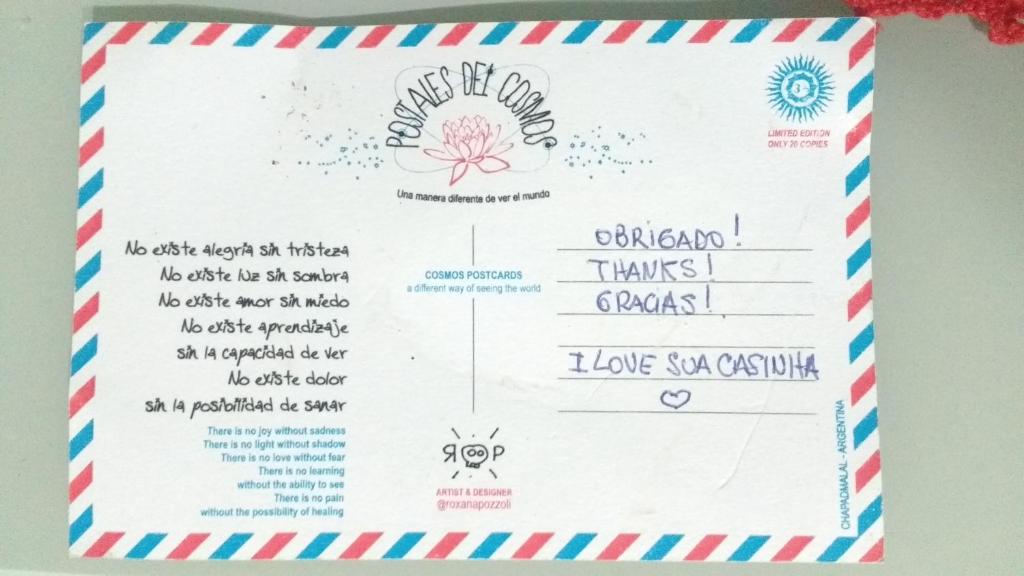 POSTALES DEL COSMOS
Una manera diferente de ver el mundo
3
LIMITED EDITION
ONLY 20 COPIES
No existe alegría sin tristeza
No existe luz sin sombra
No existe amor sin miedo
No existe aprendizaje
sin la capacidad de ver
No existe dolor
sin la posibilidad de sanar
There is no joy without sadness
There is no light without shadow
There is no love without fear
There is no learning
without the ability to see
There is no pain
without the possibility of healing
COSMOS POSTCARDS
a different way of seeing the world
R P
ARTIST & DESIGNER
@roxanapozzoli
OBRIGADO!
THANKS!
GRACIAS!
I LOVE SUA CASINHA
CHAPADMALAL - ARGENTINA